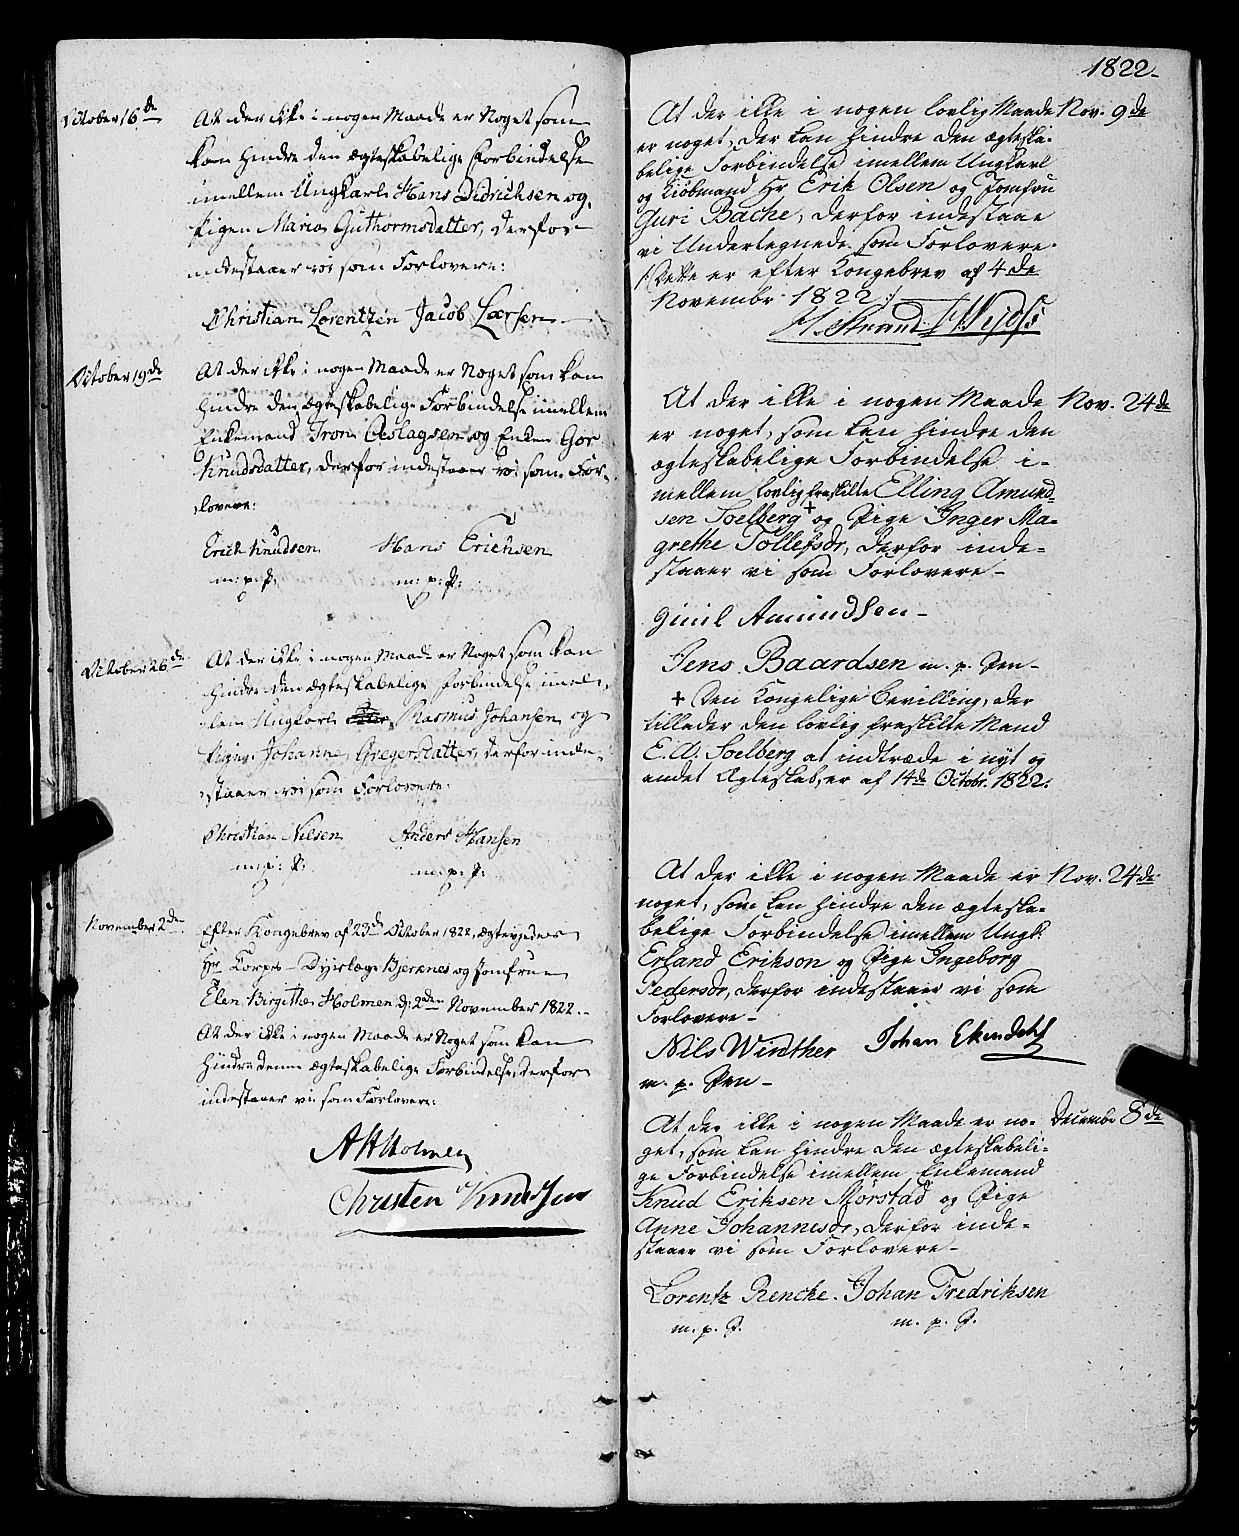 October 16de
At der ikke i nogen Maade er Noget som
kan hindre den ægteskabelige Forbindelse
imellem Ungkarl Hans Didrichsen og
Pigen Maria Guthormsdatter, derfor
indestaaer vi som Forlovere:
Christian Lorentzen Jacob Larsen
October 19de
At der ikke i nogen Maade er Noget som kan
hindre den ægteskabelige Forbindelse imellem
Enkemand Iron Aslagsen og Enken Gor
Knudsdatter, derfor indestaaer vi som For-
lovere:
Erich Knudsen Hans Erichsen
m: p: P: m: p: P:
October 26de
At der ikke i nogen Maade er Noget som kan
hindre den ægteskabelige Forbindelse imel-
lem Ungkarl Rasmus Johansen og
Pigen Johanne Gregersdatter, derfor inde-
staaer vi som Forlovere:
Christian Nilsen Anders Hansen
m: p: P: m: p: P:
November 2de
Efter Kongebrev af 23de October 1822, ægteviedes
Hr Corps-Dyrlæge Bjerenes og Jomfrue
Elen Birgithe Holmen d: 2den November 1822.
At der ikke i nogen Maade er Noget som kan
hindre denne ægteskabelige Forbindelse, derfor
indestaaer vi som Forlovere:
AHHolmen
Christen Knudsen
1822.
At der ikke i nogen lovlig Maade Nov. 9de
er noget, der kan hindre den ægteska-
belige Forbindelse imellem Ungkarl
og Kiøbmand Hr Erik Olsen og Jomfru
Guri Bache, derfor indestaae
vi Undertegnede som Forlovere.
/: Dette er efter Kongebrev af 4de
Novembr 1822 :/
H. Strand
At der ikke i nogen Maade Nov. 24de
er noget, som kan hindre den
ægteskabelige Forbindelse i-
mellem lovlig fraskilte Elling Amund-
sen Soelberg + og Pige Inger Ma-
grethe Tollefsdr, derfor inde-
staaer vi som Forlovere-
Amundsen-
Jens Baardsen m. p. Pen-
+ Den Kongelige Bevilling, der
tillader den lovlig fraskilte Mand
E. A. Soelberg at indtræde i nyt og
andet Ægteskab, er af 14de Octobr. 1822.
At der ikke i nogen Maade er Nov. 24de
noget, som kan hindre den ægteska-
belige Forbindelse imellem Ungk:
Erland Erikson og Pige Ingeborg
Pedersdr, derfor indestaaer vi som
Forlovere-
Nils Winther Johan Ekendahl
m. p. Pen-
At der ikke i nogen Maade er no- Decembr 8de
get, som kan hindre den ægteskabeli-
ge Forbindelse imellem Enkemand
Knud Eriksen Mørstad og Pige
Anne Johannesdr, derfor inde-
staaer vi som Forlovere-
Lorentz Rencke. Johan Fredriksen
m. p. P. m. p. P.